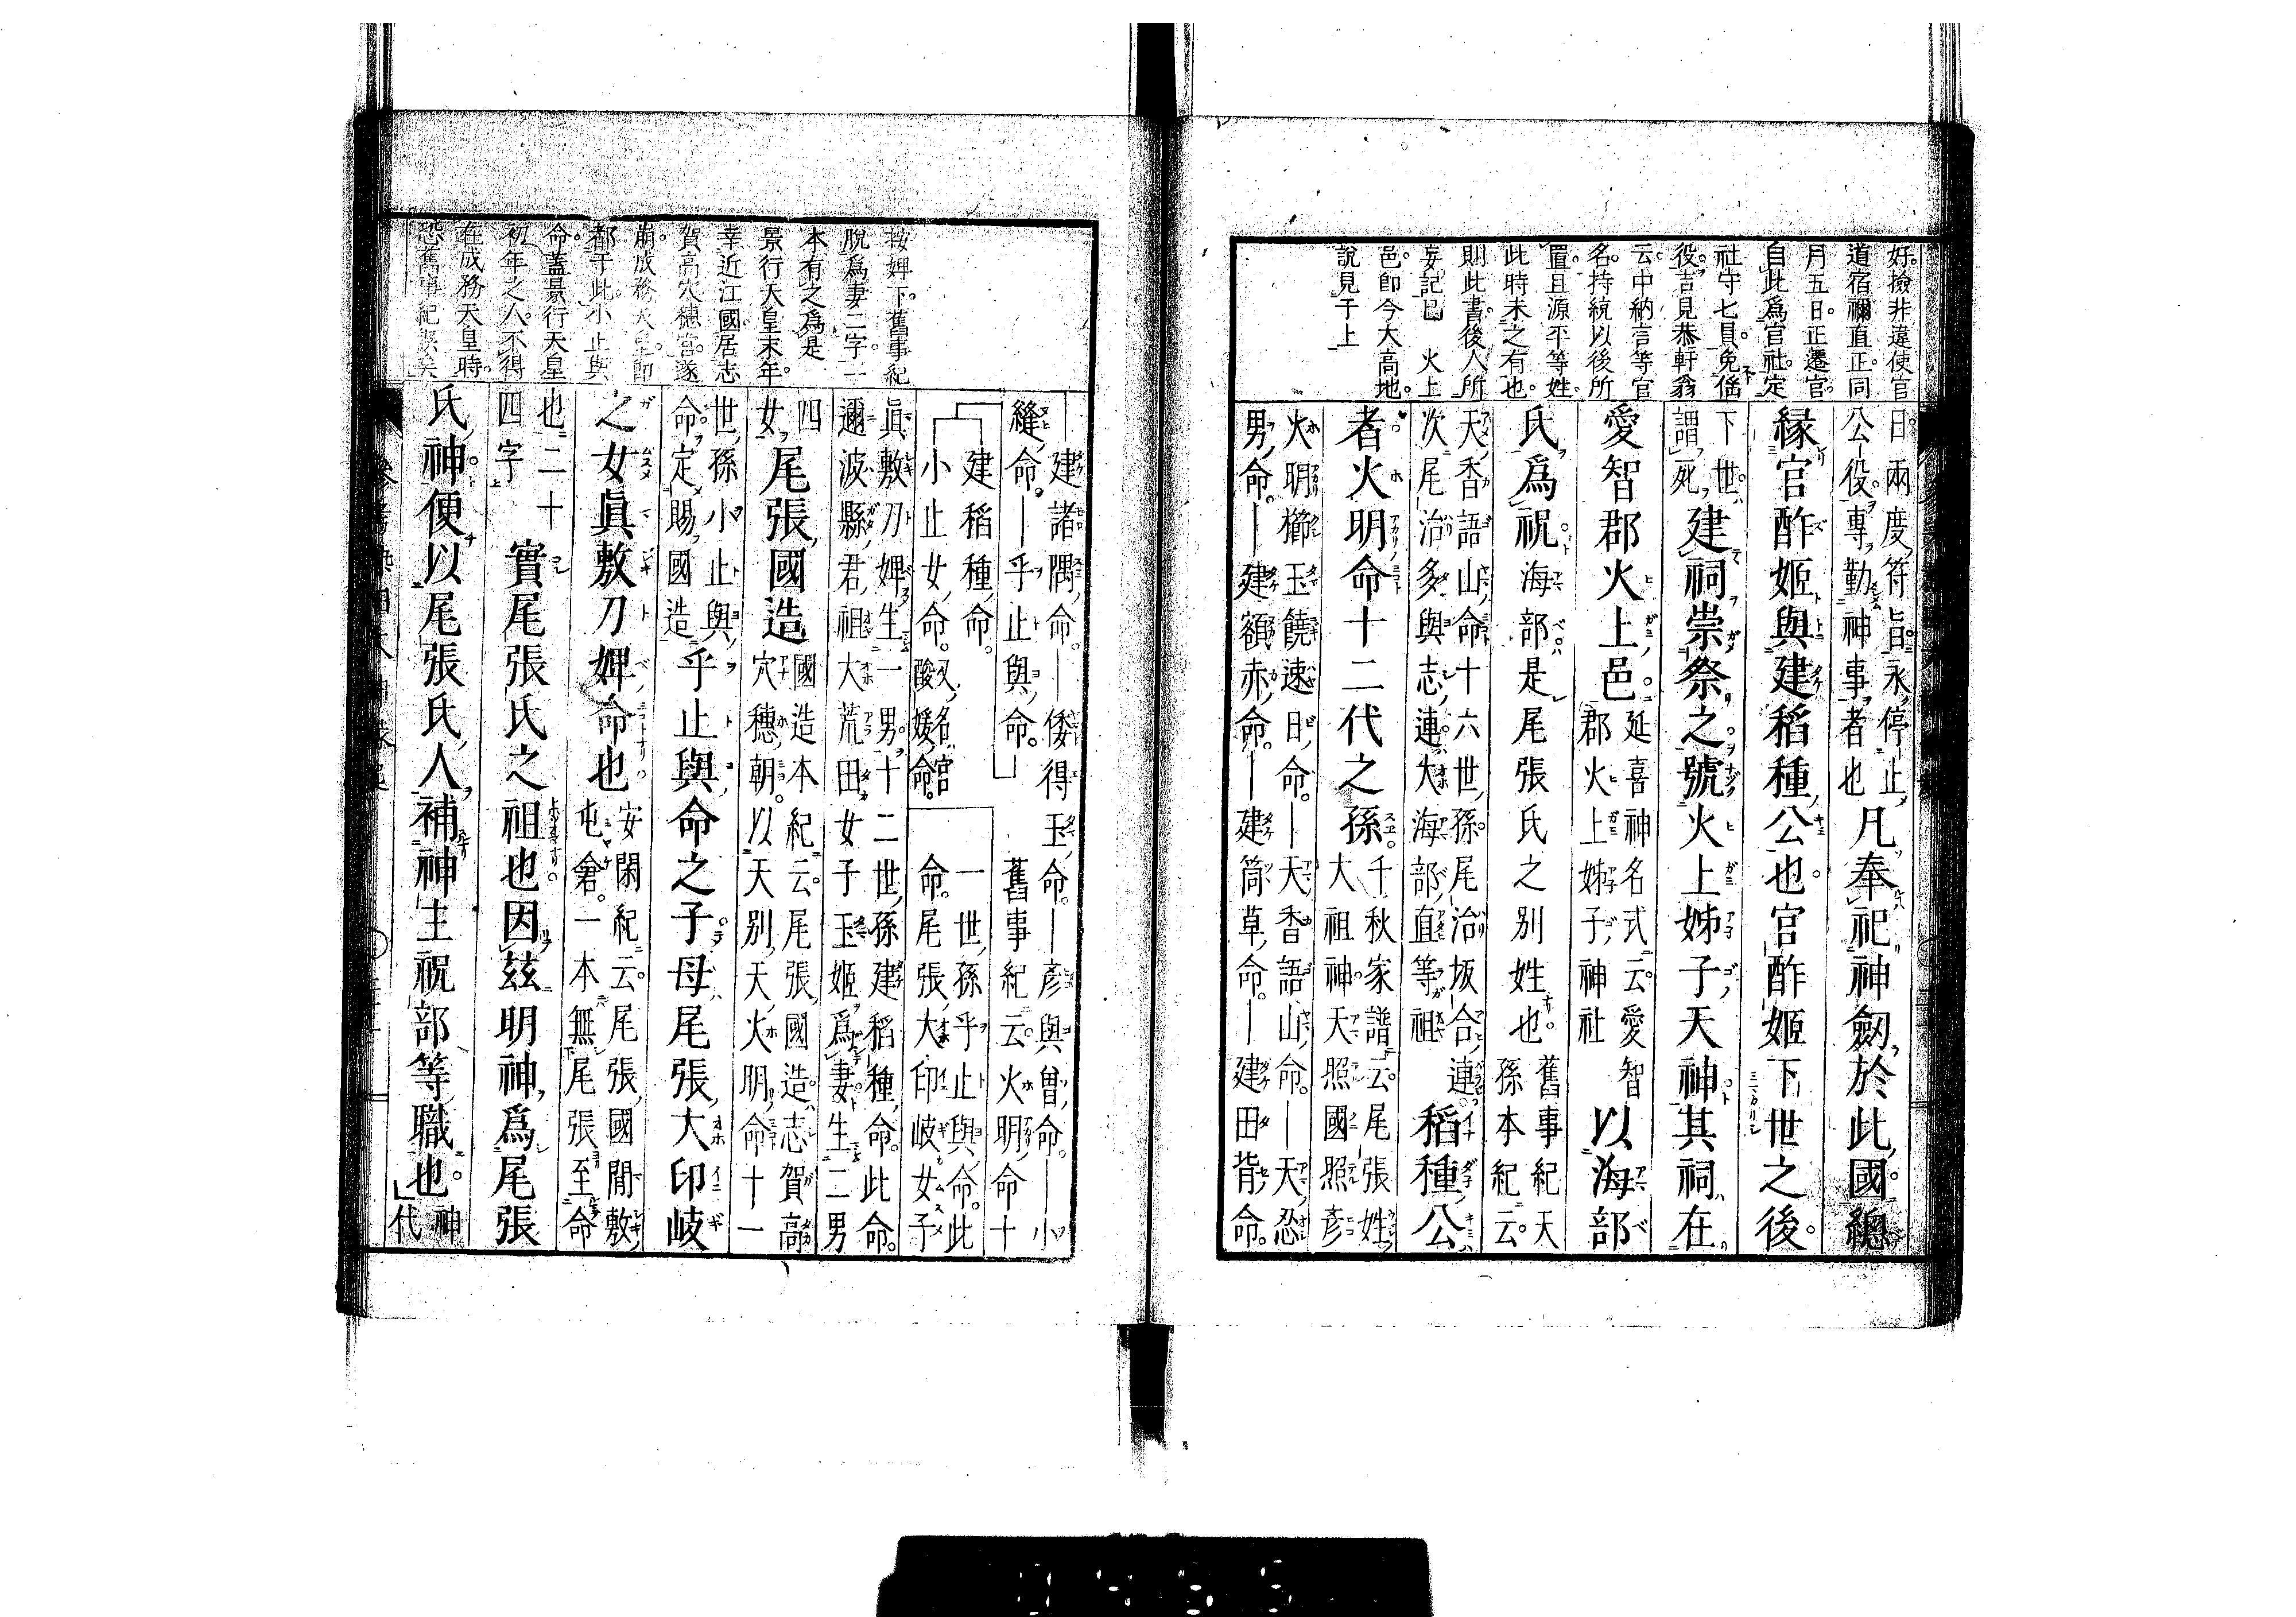 好。撿非違使官
道宿禰直正。同
月五日。正遷宮。
自此爲官社。定
社守七員。免傜
役。吉見恭軒翁
云。中納言等官
名。持統以後所
置。且源平等姓。
此時未之有也。
則此書。後人所
妄記已 火上
邑。卽今大高地。
說見于上
日。兩度。符旨。永停止
公役。專勤神事者也
凡奉祀神劔於此國總
緣官酢姬與建稻種公也。官酢姬下世之後。
下世。
謂死
建祠崇祭之號火上姉子天神其祠在
愛智郡火上邑
延喜神名式云。愛智
郡火上姉子神社
以海部
氏爲祝
海部是尾張氏之別姓也。舊事紀天
孫本紀云。
天香語山命十六世孫尾治坂合連。
次尾治多與志連。大海部直等祖
稻種公
者火明命十二代之孫
千秋家譜云。尾張姓。
大祖神天照國照彥
火明櫛玉饒速日命。―天香語山命。―天忍
男命。―建額赤命。―建筒草命。―建田背命。
按婢下。舊事紀
脫爲妻二字。一
本有之爲是
景行天皇末年。
幸近江國。居志
賀高穴穗宮。遂
崩。成務天皇卽
都于此。小止與
命。蓋景行天皇
初年之人。不得
在成務天皇時。
恐舊事紀誤矣
―建諸隅命。―倭得玉命。―彥與曾命。―小
縫命。―乎止與命。
舊事紀云。火明命十
建稻種命。
小止女命。
又名宮
酸媛命。
一世孫乎止與命。此
命。尾張大印岐女子
眞敷刀婢。生一男。十二世孫建稻種命。此命。
邇波縣君祖大荒田女子玉姬爲妻。生二男
四
女
尾張國造
國造本紀云。尾張國造。志賀高
穴穗朝。以天別天火明命十一
世孫小止與
命。定賜國造
乎止與命之子。母尾張大印岐
之女眞敷刀婢命也
安閑紀云。尾張國間敷
屯倉。一本無尾張至命
也二十
四字
實尾張氏之祖也。因茲明神爲尾張
氏神。便以尾張氏人。補神主祝部等職也。
神
代